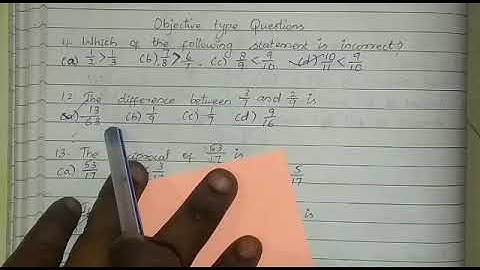 Objective type Questions
11. Which of the following statement is incorrect?
(a) 1/2 > 1/3 (b) 7/8 > 6/7 (c) 8/9 < 9/10 (d) 10/11 < 9/10
12. The difference between 3/7 and 2/9 is
(a) 13/63 (b) 1/9 (c) 1/7 (d) 9/16
13. The of 53/17 is
(a) 53/17 5/17
is